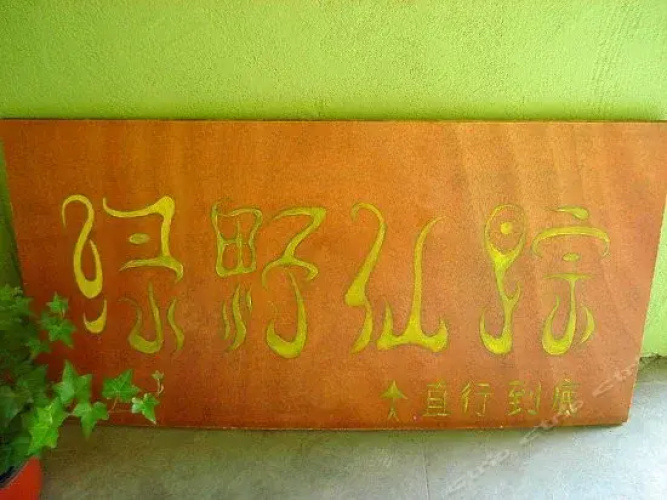 绿野仙踪
↑直行到底